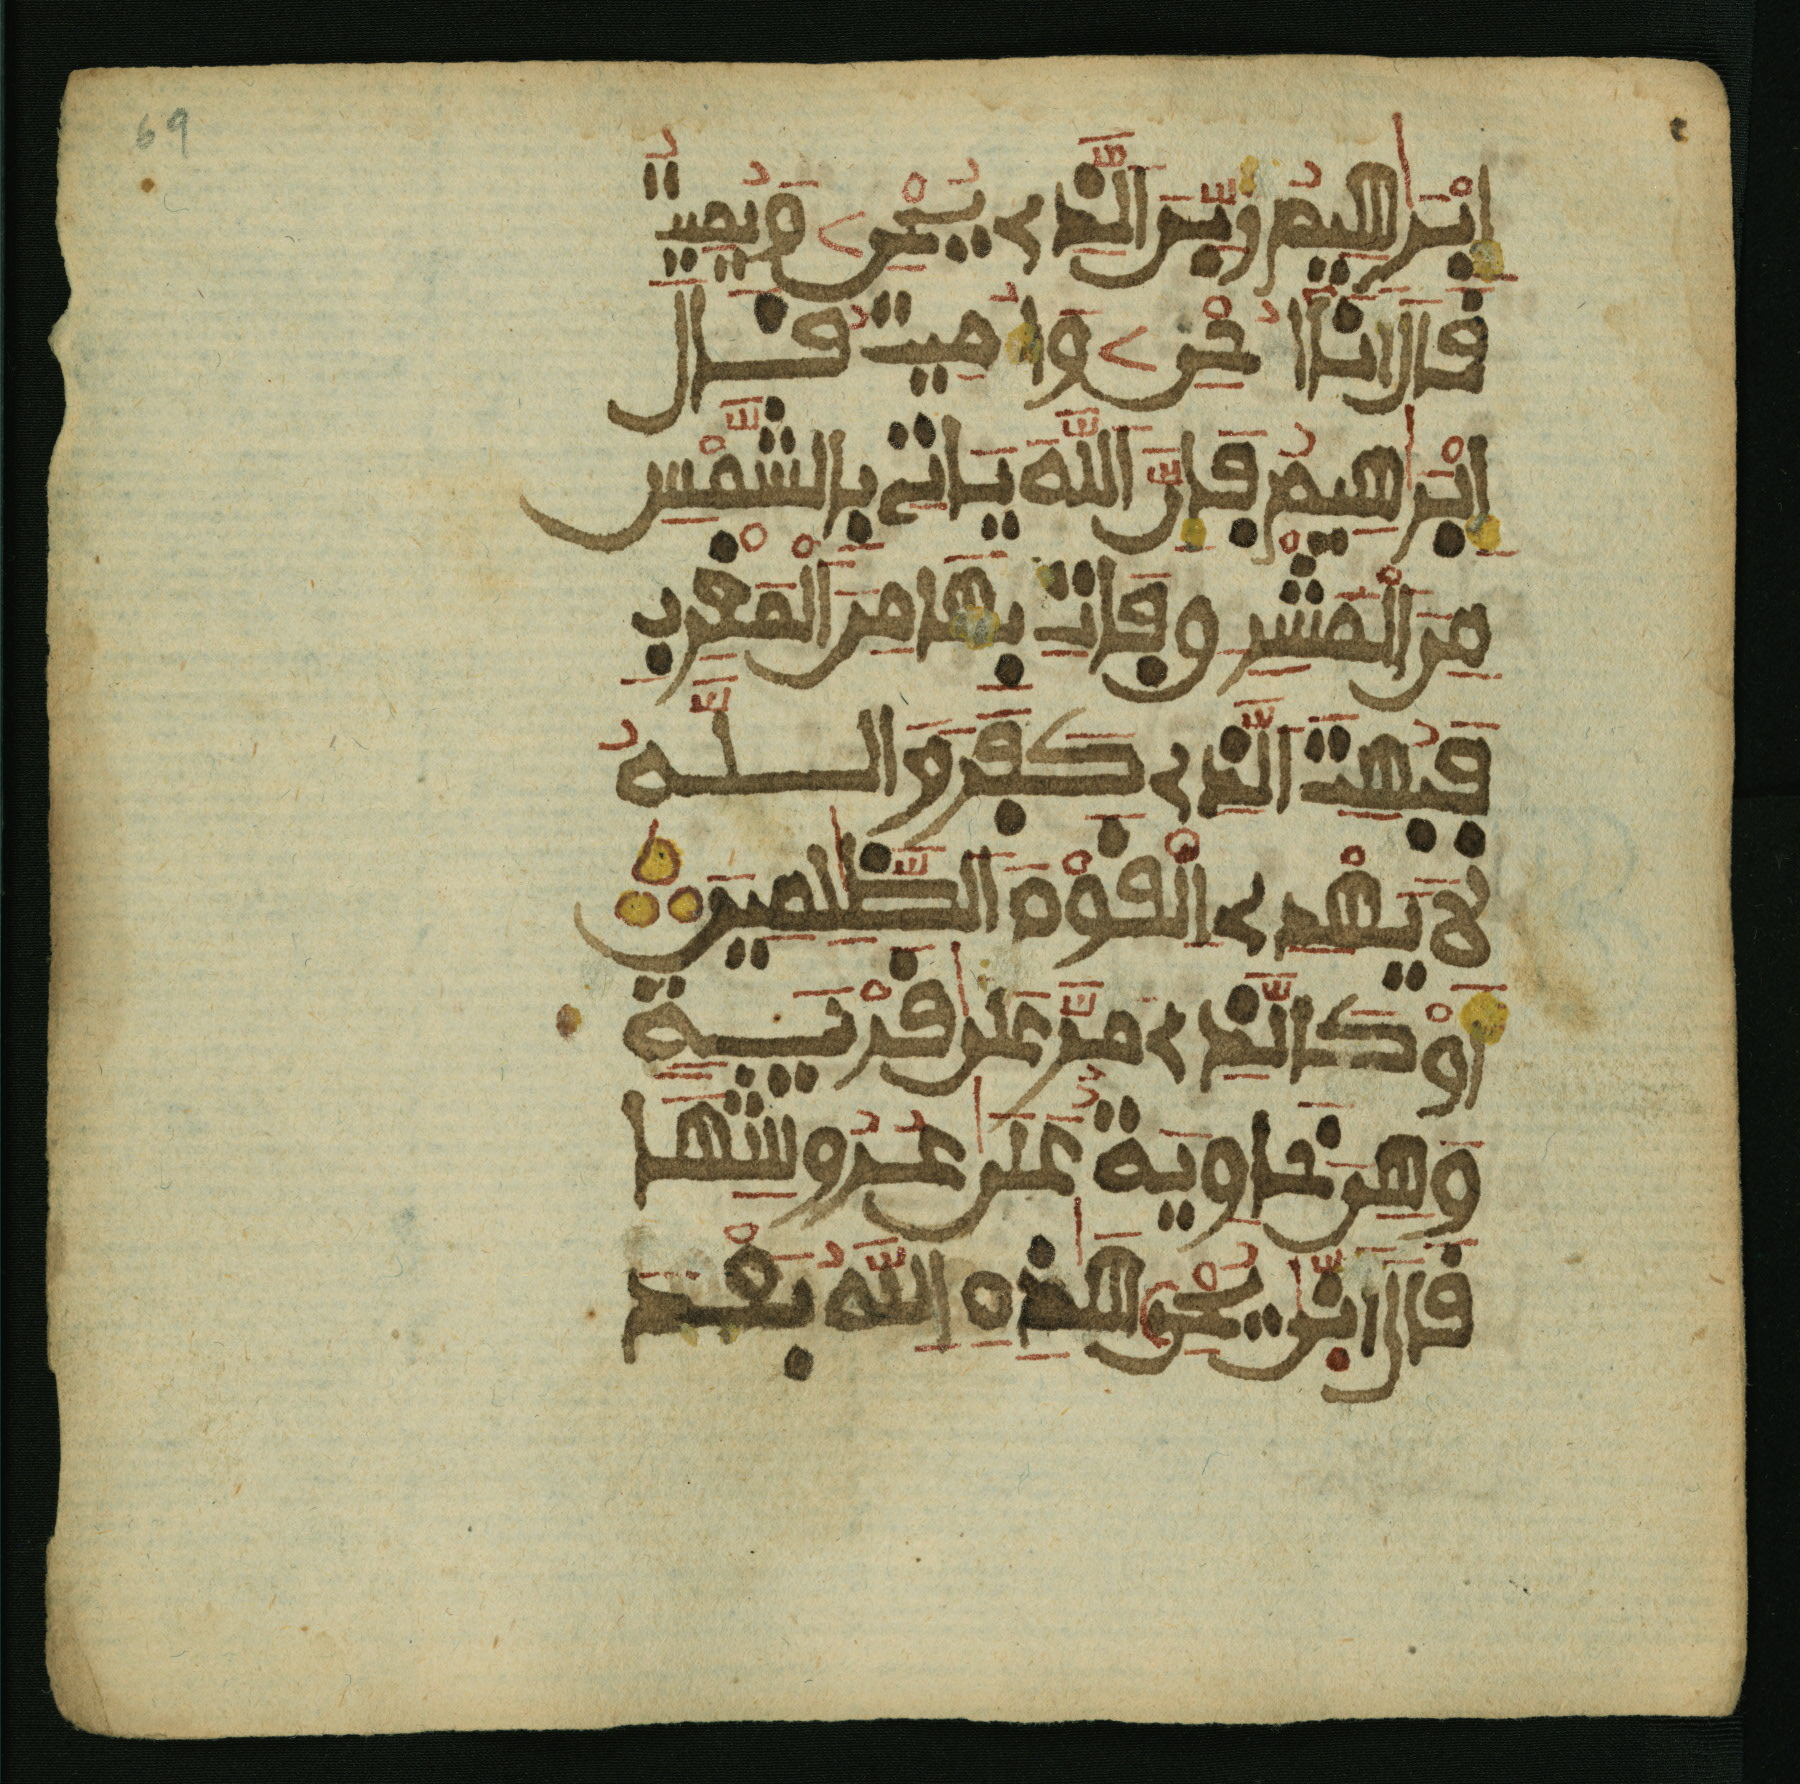 69
إِبْرَاهِيمُ رَبِّيَ الَّذِي يُحْيِي وَيُمِيتُ
قَالَ أَنَا أُحْيِي وَأُمِيتُ قَالَ
إِبْرَاهِيمُ فَإِنَّ اللَّهَ يَاتِي بِالشَّمْسِ
مِنَ الْمَشْرِقِ فَاتِ بِهَا مِنَ الْمَغْرِبِ
فَبُهِتَ الَّذِي كَفَرَ وَاللَّهُ
لَا يَهْدِي الْقَوْمَ الظَّالِمِينَ
أَوْ كَالَّذِي مَرَّ عَلَىٰ قَرْيَةٍ
وَهِيَ خَاوِيَةٌ عَلَىٰ عُرُوشِهَا
قَالَ أَنَّىٰ يُحْيِي هَٰذِهِ اللَّهُ بَعْدَ